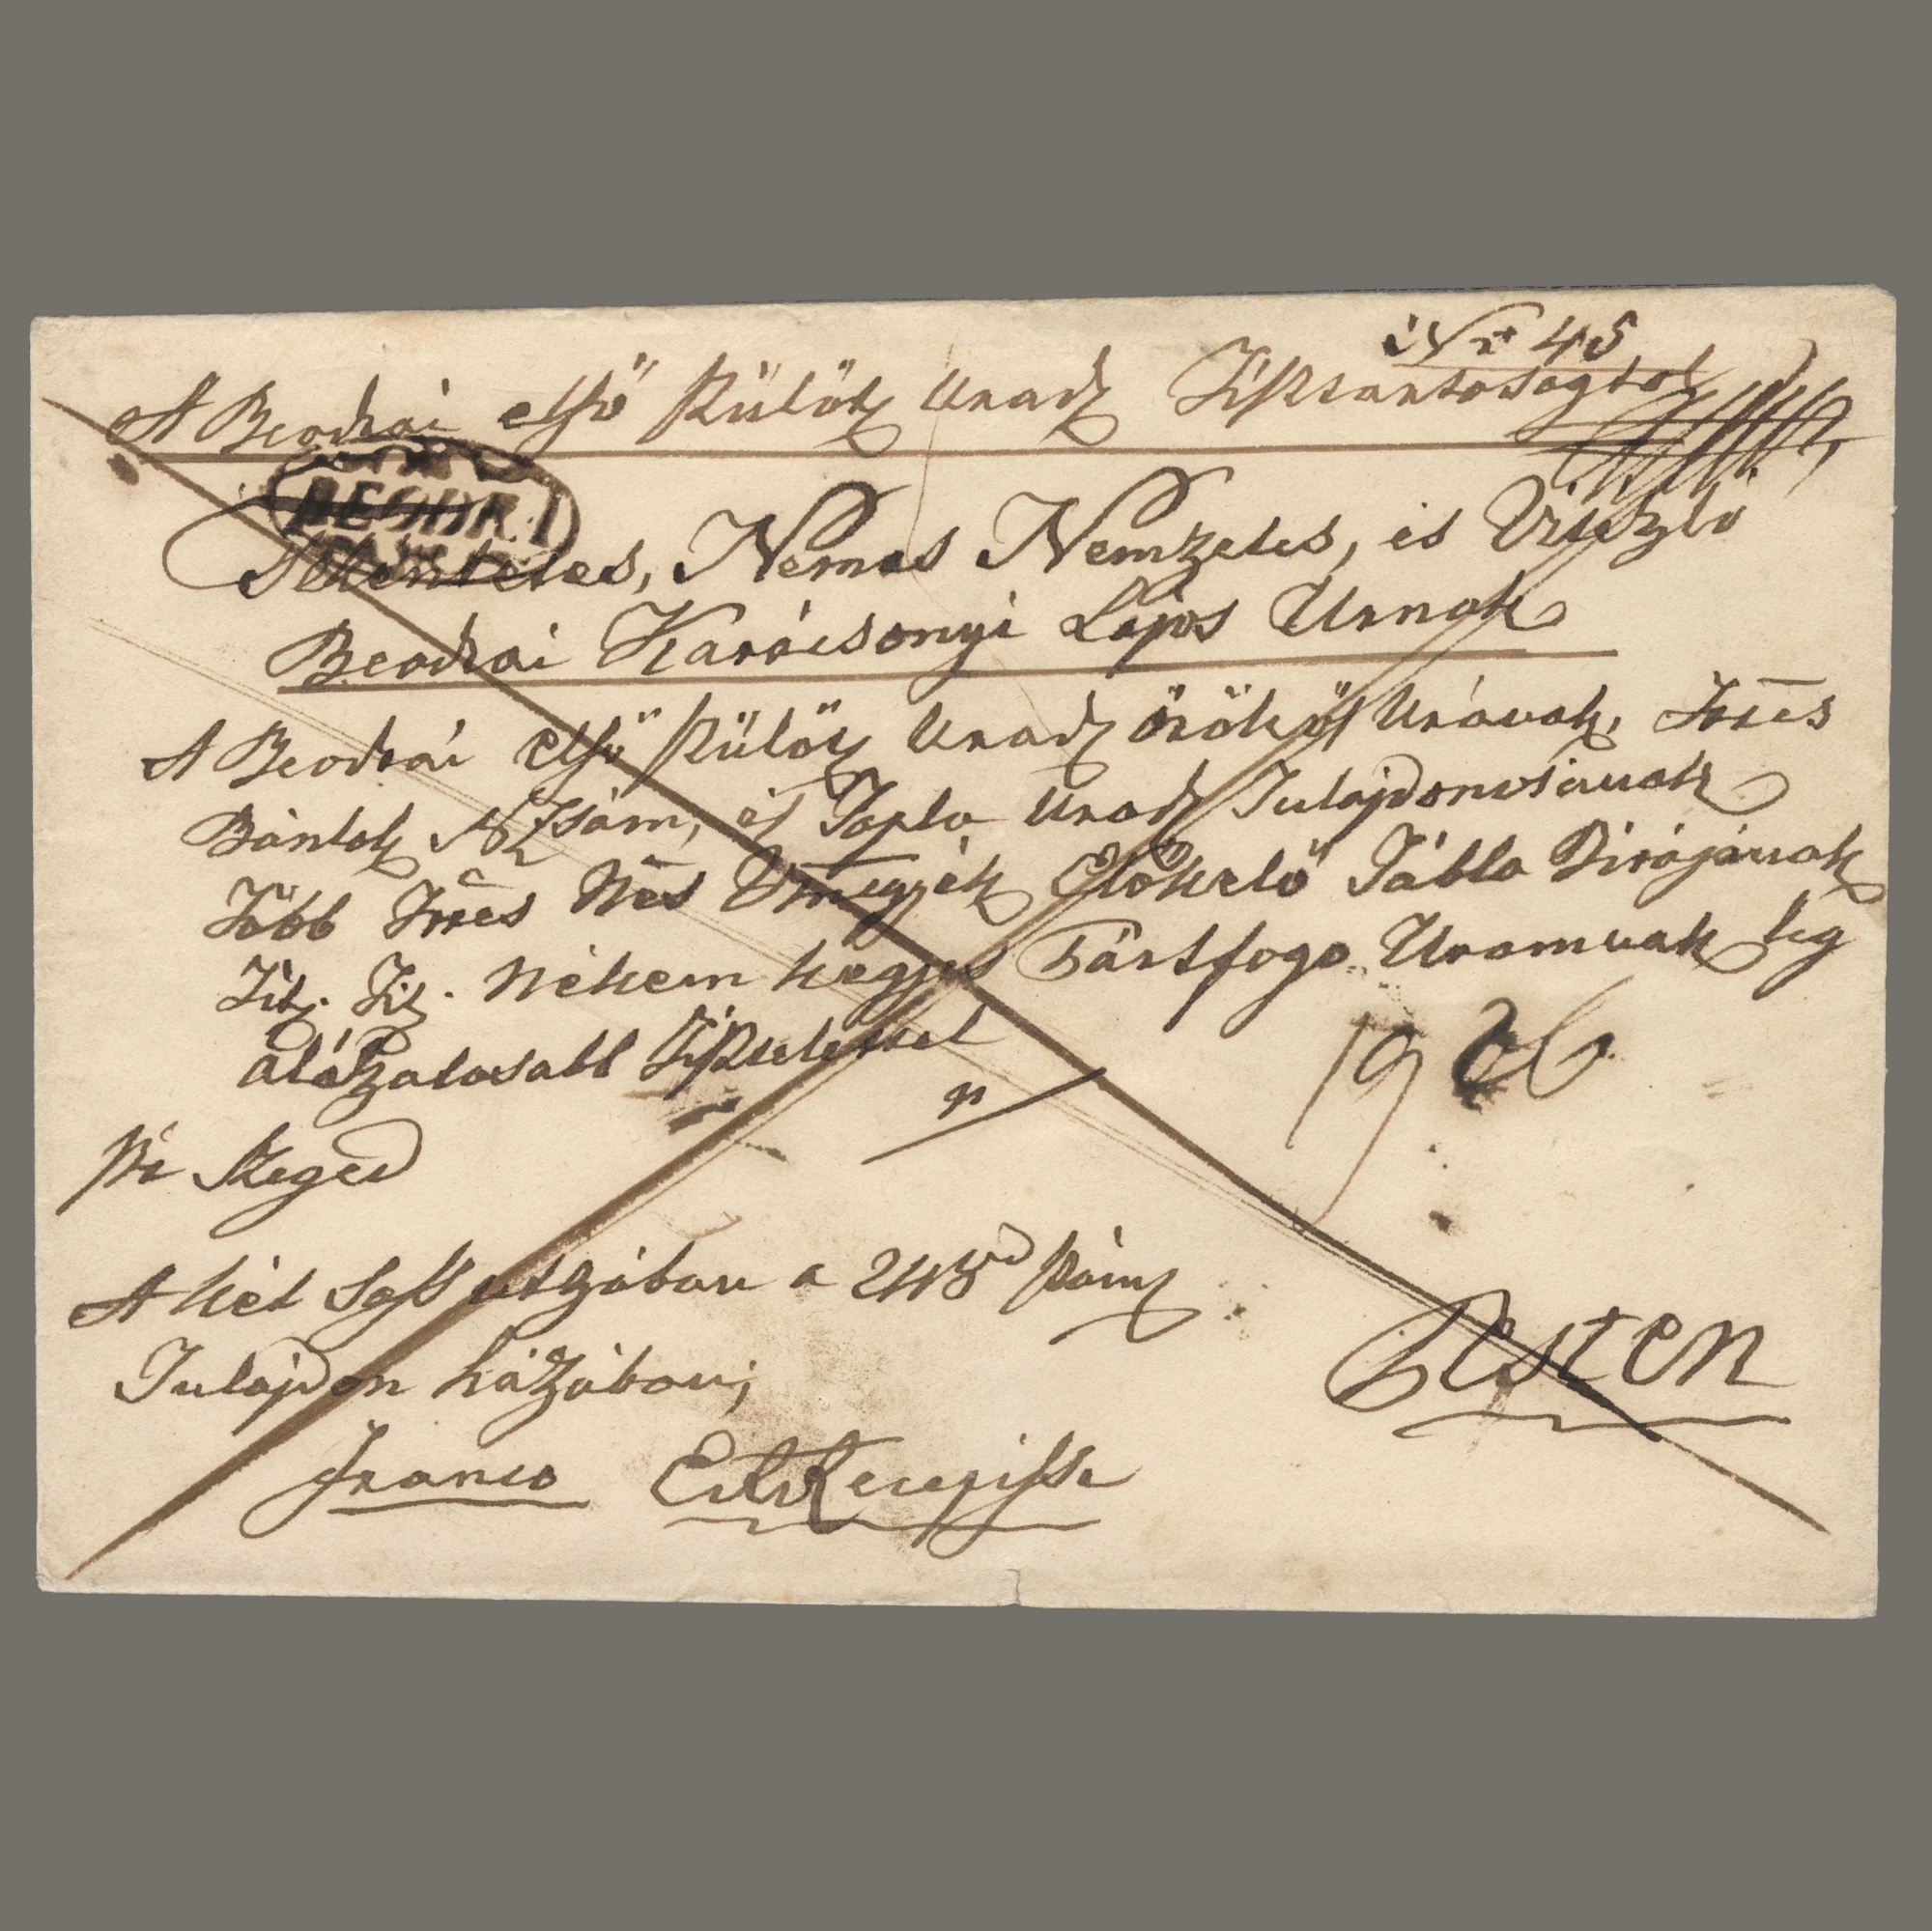 Nr 45
A Beodrai első Külön Urad Tiszttartoságtol
BEODRA
Tekintetes, Nemes Nemzetes, és Vitézlő
Beodrai Karácsonyi Lajos Urnak
A Beodrai első Külön Urad örökös Urának, Ttes
Bánlak N Zsám, és Topla Urad Tulajdonosának
Több Ttes Nes Vmegyék Előkelő Tábla Birájának
Tit. Tit. Nékem kegyes Pártfogo Uramnak leg
alázatosabb Tisztelettel
Pr Szeged
A két Sass utzában a 245d Szám
Tulajdon házában;
Pesten
Franco Ex Recepisse